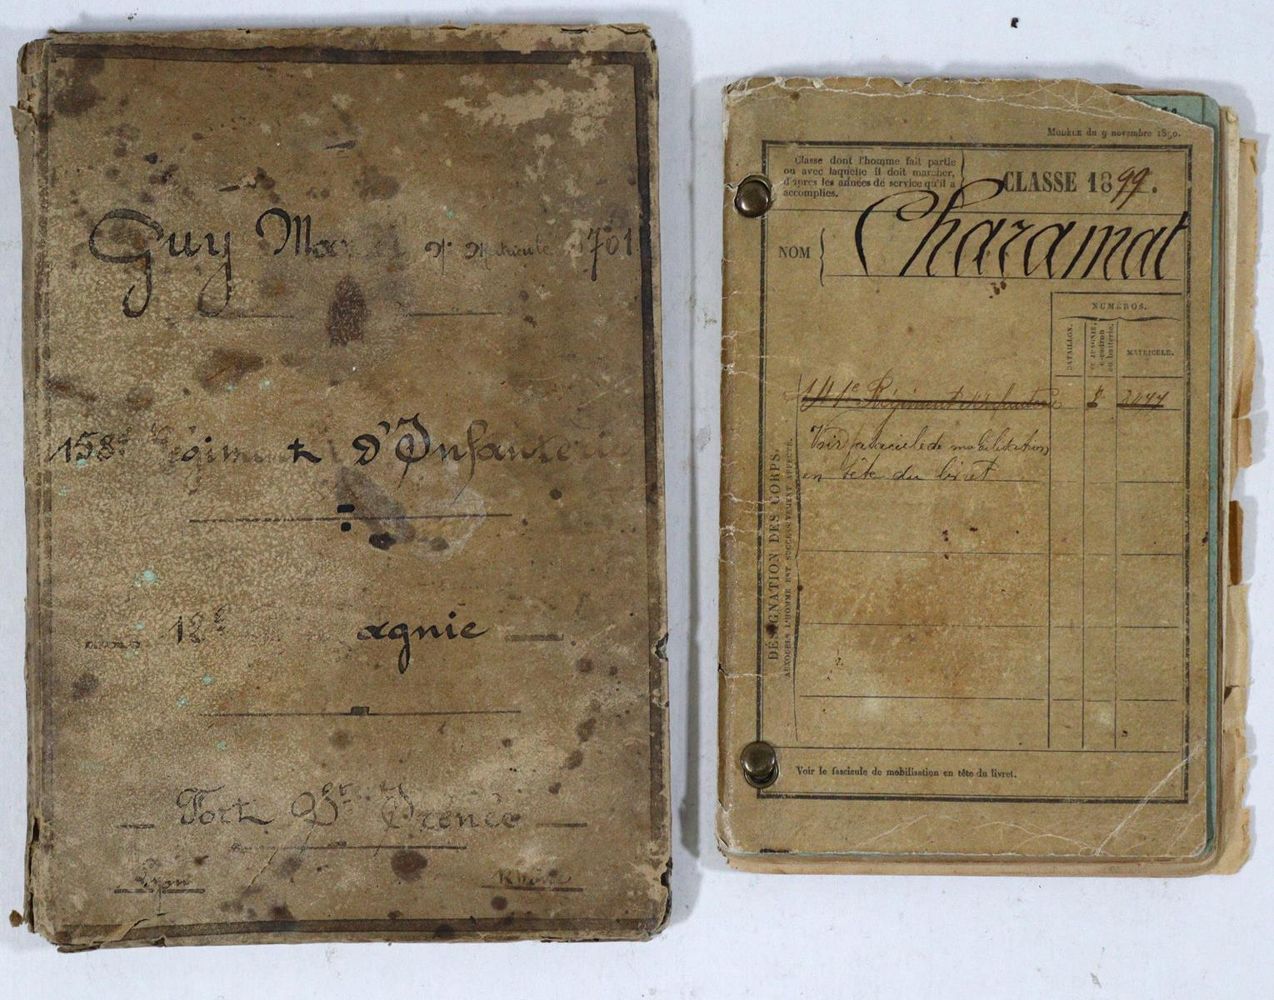 Guy Ma N° Matricule 1701
158e Régiment d'Infanterie
12e agnie
Fort St Irénée
Lyon Rhône
Modèle du 9 novembre 1890.
Classe dont l'homme fait partie
ou avec laquelle il doit marcher,
d'après les années de service qu'il a
accomplies.
CLASSE 1899.
NOM Charamat
NUMÉROS.
BATAILLON.
MATRICULE.
DÉSIGNATION DES CORPS
AUXQUELS L'HOMME EST SUCCESSIVEMENT AFFECTÉ.
Régiment d'Infanterie
Voir fascicule de mobilisation
en tête du livret
Voir le fascicule de mobilisation en tête du livret.